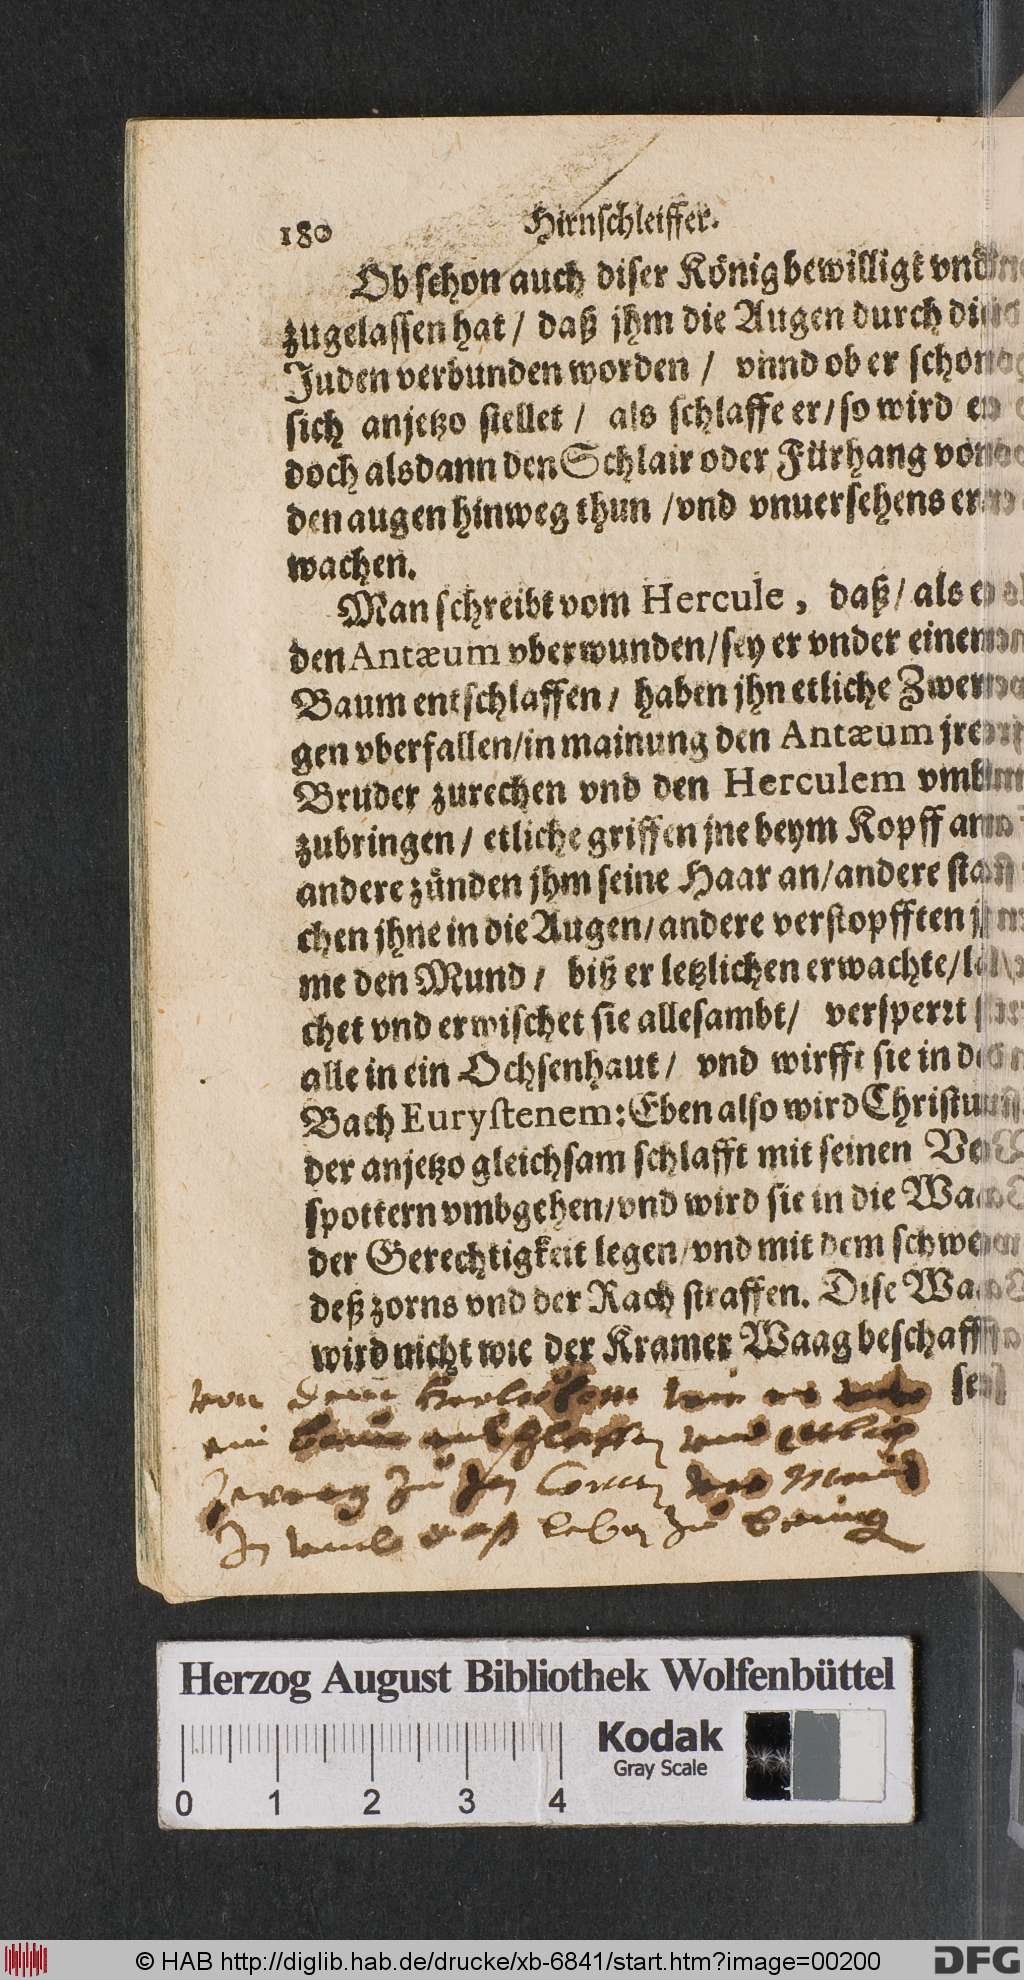 180
Hirnschleiffer.
Ob schon auch diser König bewilligt vnd
zugelassen hat / daß jhm die Augen durch die
Juden verbunden worden / vnnd ob er schon
sich anjetzo stellet / als schlaffe er / so wird er
doch alsdann den Schlair oder Fürhang von
den augen hinweg thun / vnd vnuersehens er
wachen.
Man schreibt vom Hercule, daß / als er
den Antæum vberwunden / sey er vnder einem
Baum entschlaffen / haben jhn etliche Zwer
gen vberfallen / in mainung den Antæum jren
Bruder zurechen vnd den Herculem vmb
zubringen / etliche griffen jne beym Kopff an
andere zünden jhm seine Haar an / andere sta
chen jhne in die Augen / andere verstopfften
me den Mund / biß er letzlichen erwachte /
chet vnd erwischet sie allesambt / versperrt
alle in ein Ochsenhaut / vnd wirfft sie in den
Bach Eurystenem: Eben also wird Christus
der anjetzo gleichsam schlafft mit seinen Ver
spottern vmbgehen / vnd wird sie in die Waag
der Gerechtigkeit legen / vnd mit dem schwe
deß zorns vnd der Rach straffen. Dise Waag
wird nicht wie der Kramer Waag beschaffen
von dem
ein entschlaffen vnd etlich
zwerg zu Im
In vmb daß leben zu bring
Herzog August Bibliothek Wolfenbüttel
Kodak
Gray Scale
0 1 2 3 4
© HAB http://diglib.hab.de/drucke/xb-6841/start.htm?image=00200
DFG